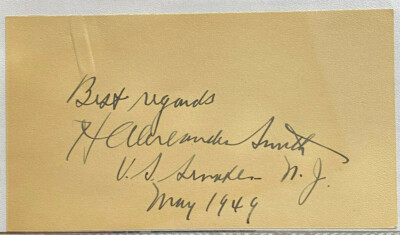 Best regards
H Alexander Smith
U.S. Senator N.J.
May 1949